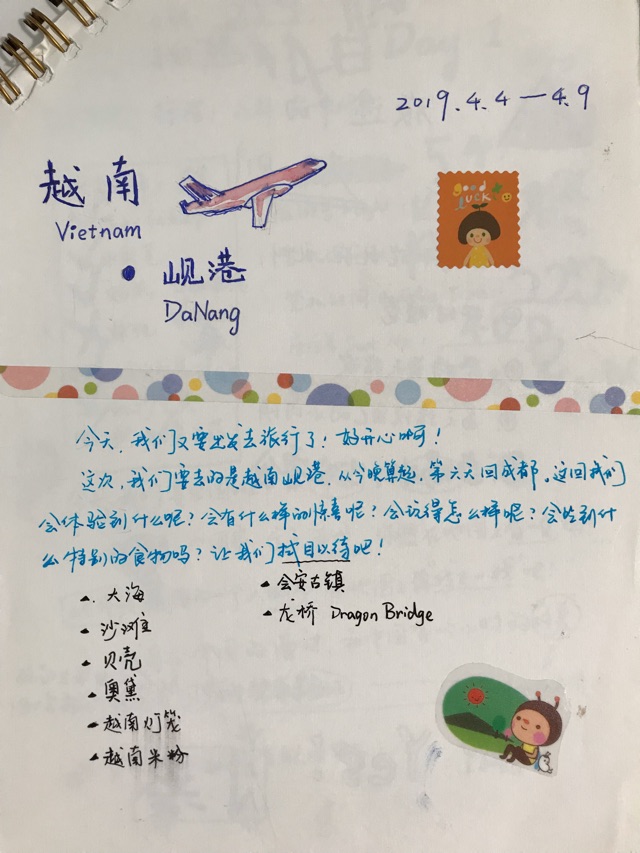 2019.4.4—4.9
越南
Vietnam
good
LUCK
• 岘港
DaNang
今天,我们又要出发去旅行了!好开心啊!
这次,我们要去的是越南岘港,从今晚算起,第六天回成都。这回我们
会体验到什么呢?会有什么样的惊喜呢?会玩得怎么样呢?会吃到什
么特别的食物吗?让我们拭目以待吧!
大海
沙滩
贝壳
奥黛
越南灯笼
越南米粉
会安古镇
龙桥 Dragon Bridge